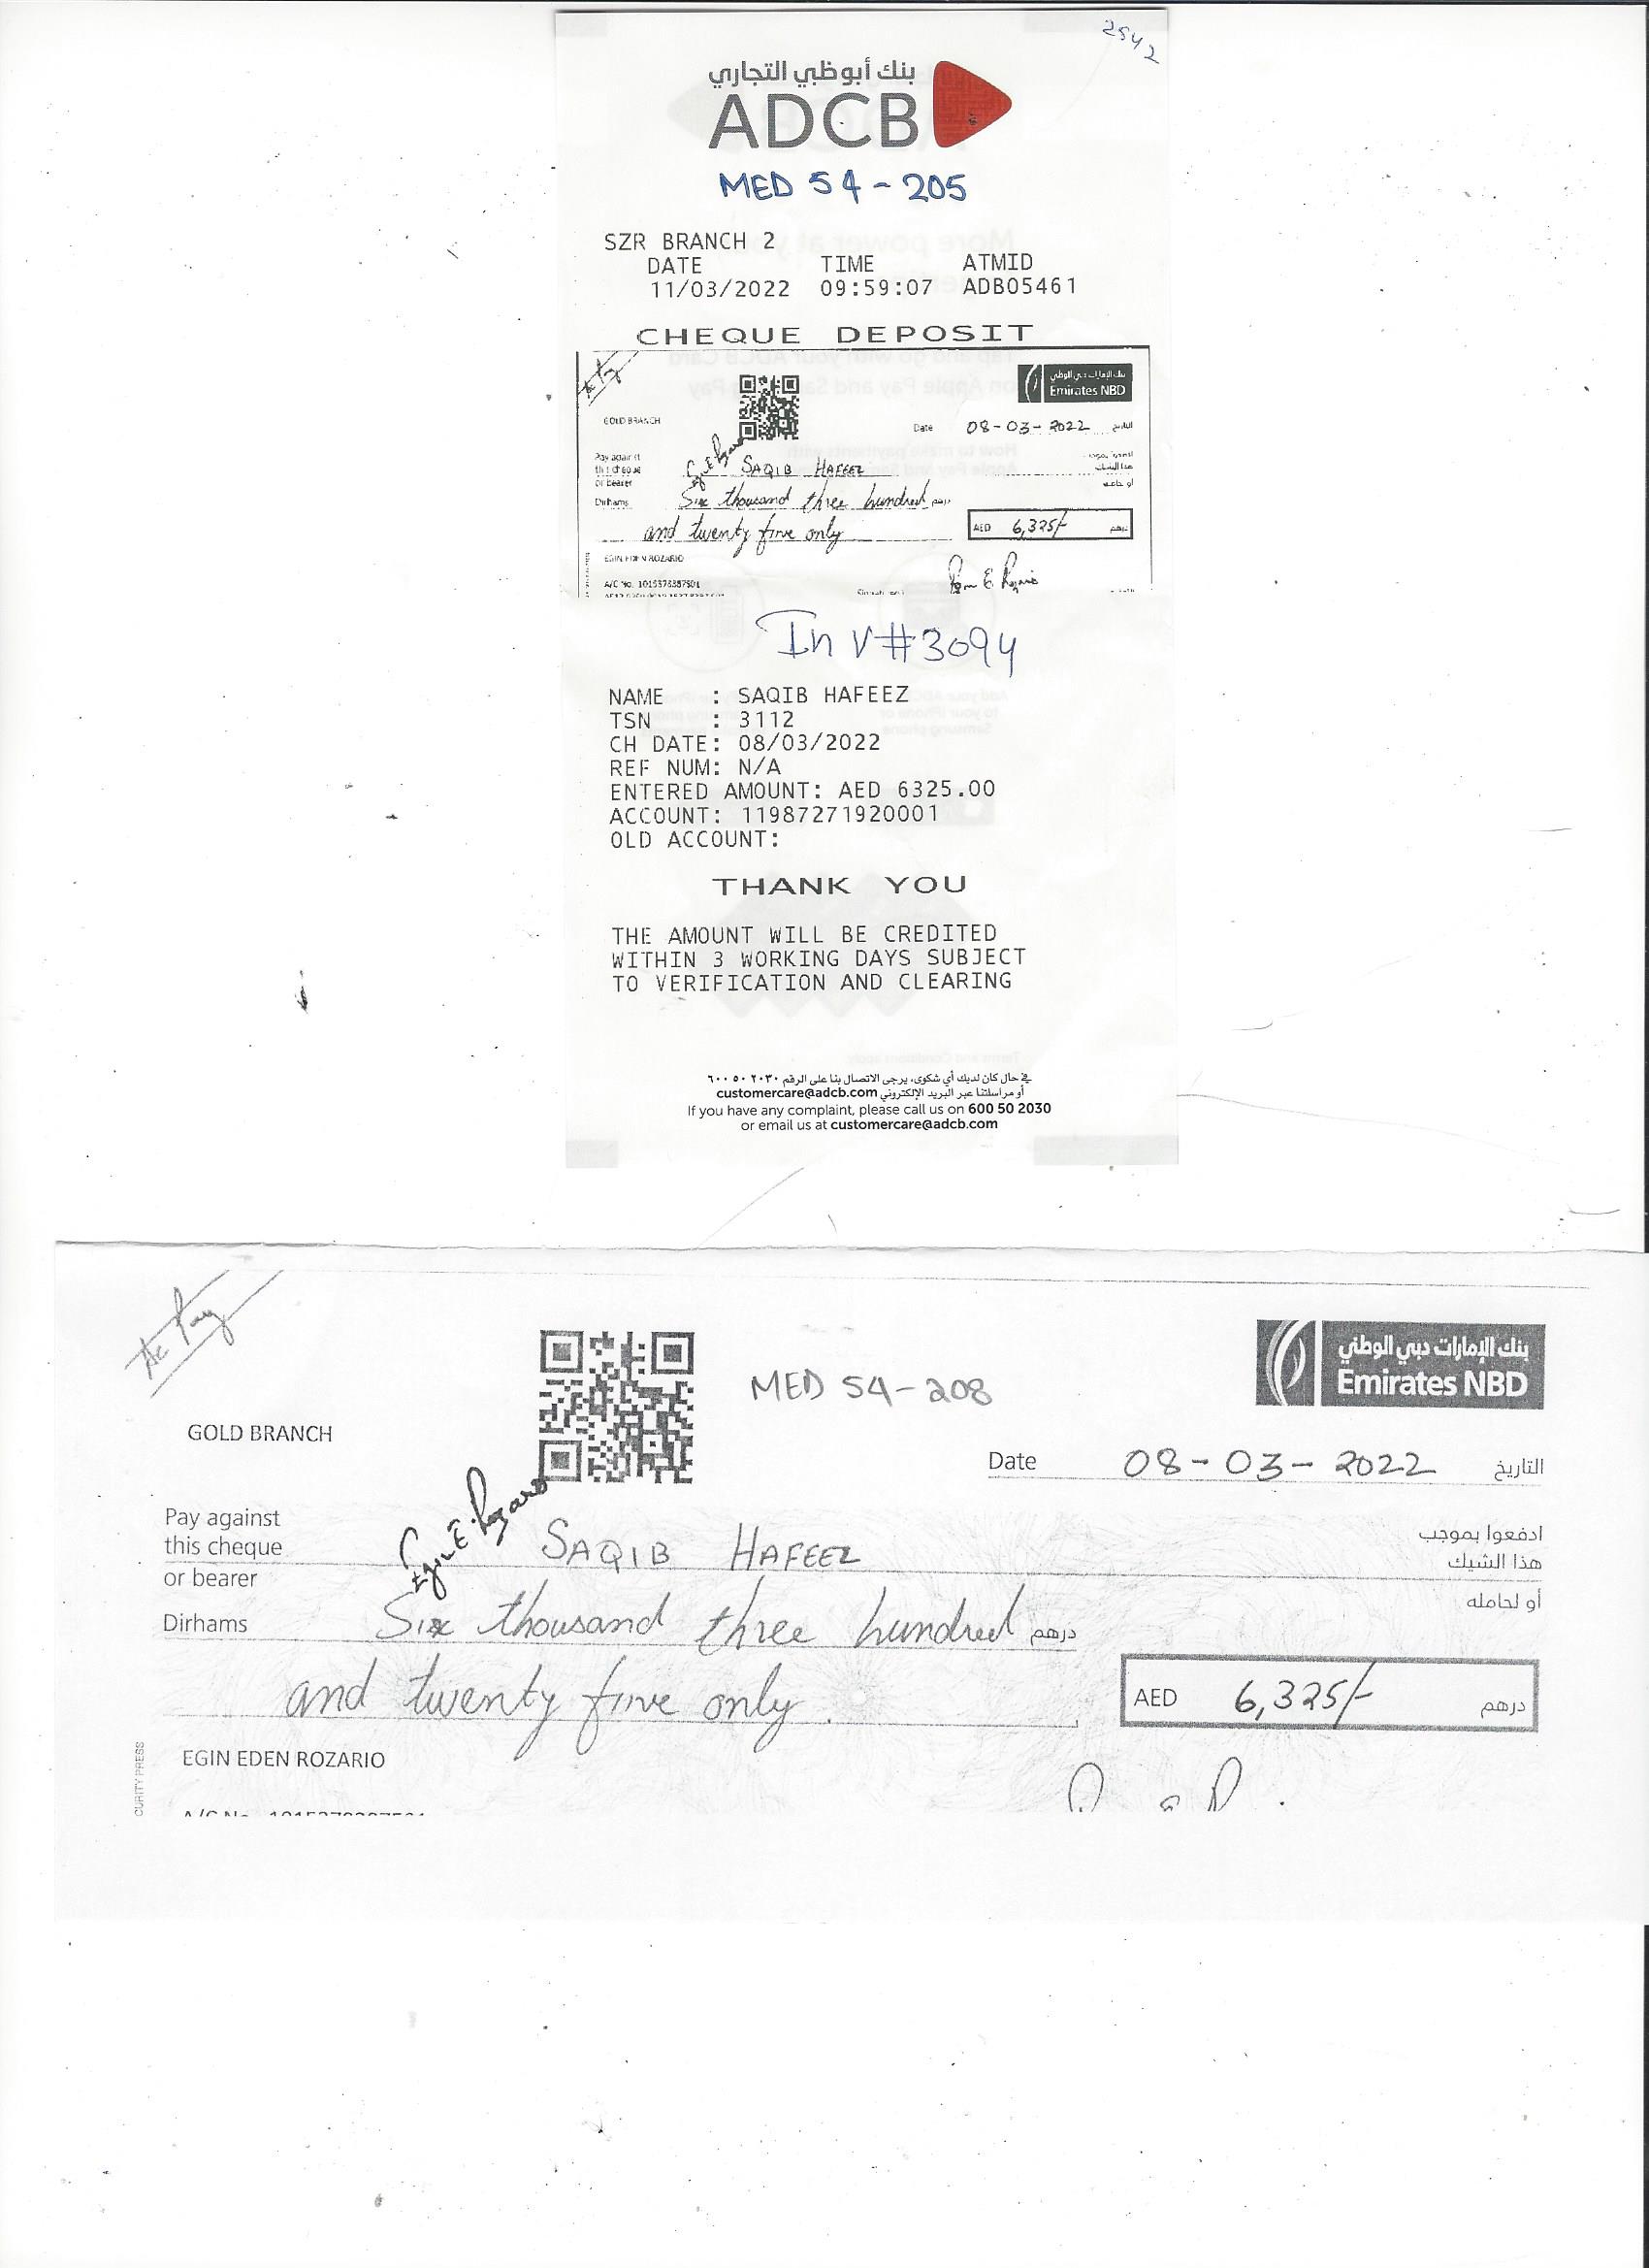 2542
بنك أبوظبي التجاري
ADCB
MED 54-205
SZR BRANCH 2
DATE TIME ATMID
11/03/2022 09:59:07 ADB05461
CHEQUE DEPOSIT
بنك الإمارات دبي الوطني
Emirates NBD
GOLD BRANCH
Date 08-03-2022 التاريخ
Pay against
this cheque SAQIB HAFEEZ هذا الشيك
or bearer أو لحامله
Dirhams Six thousand three hundred درهم
and twenty five only AED 6,325/- درهم
EGIN EDEN ROZARIO
A/C No. 1015378387501
Inv#3094
NAME : SAQIB HAFEEZ
TSN : 3112
CH DATE: 08/03/2022
REF NUM: N/A
ENTERED AMOUNT: AED 6325.00
ACCOUNT: 11987271920001
OLD ACCOUNT:
THANK YOU
THE AMOUNT WILL BE CREDITED
WITHIN 3 WORKING DAYS SUBJECT
TO VERIFICATION AND CLEARING
في حال كان لديك أي شكوى، يرجى الاتصال بنا على الرقم ٦٠٠ ٥٠ ٢٠٣٠
أو مراسلتنا عبر البريد الإلكتروني customercare@adcb.com
If you have any complaint, please call us on 600 50 2030
or email us at customercare@adcb.com
A/c Pay
MED 54-208
بنك الإمارات دبي الوطني
Emirates NBD
GOLD BRANCH
Date 08-03-2022 التاريخ
Pay against ادفعوا بموجب
this cheque SAQIB HAFEEZ هذا الشيك
or bearer أو لحامله
Dirhams Six thousand three hundred درهم
and twenty five only. AED 6,325/- درهم
EGIN EDEN ROZARIO
CURITY PRESS